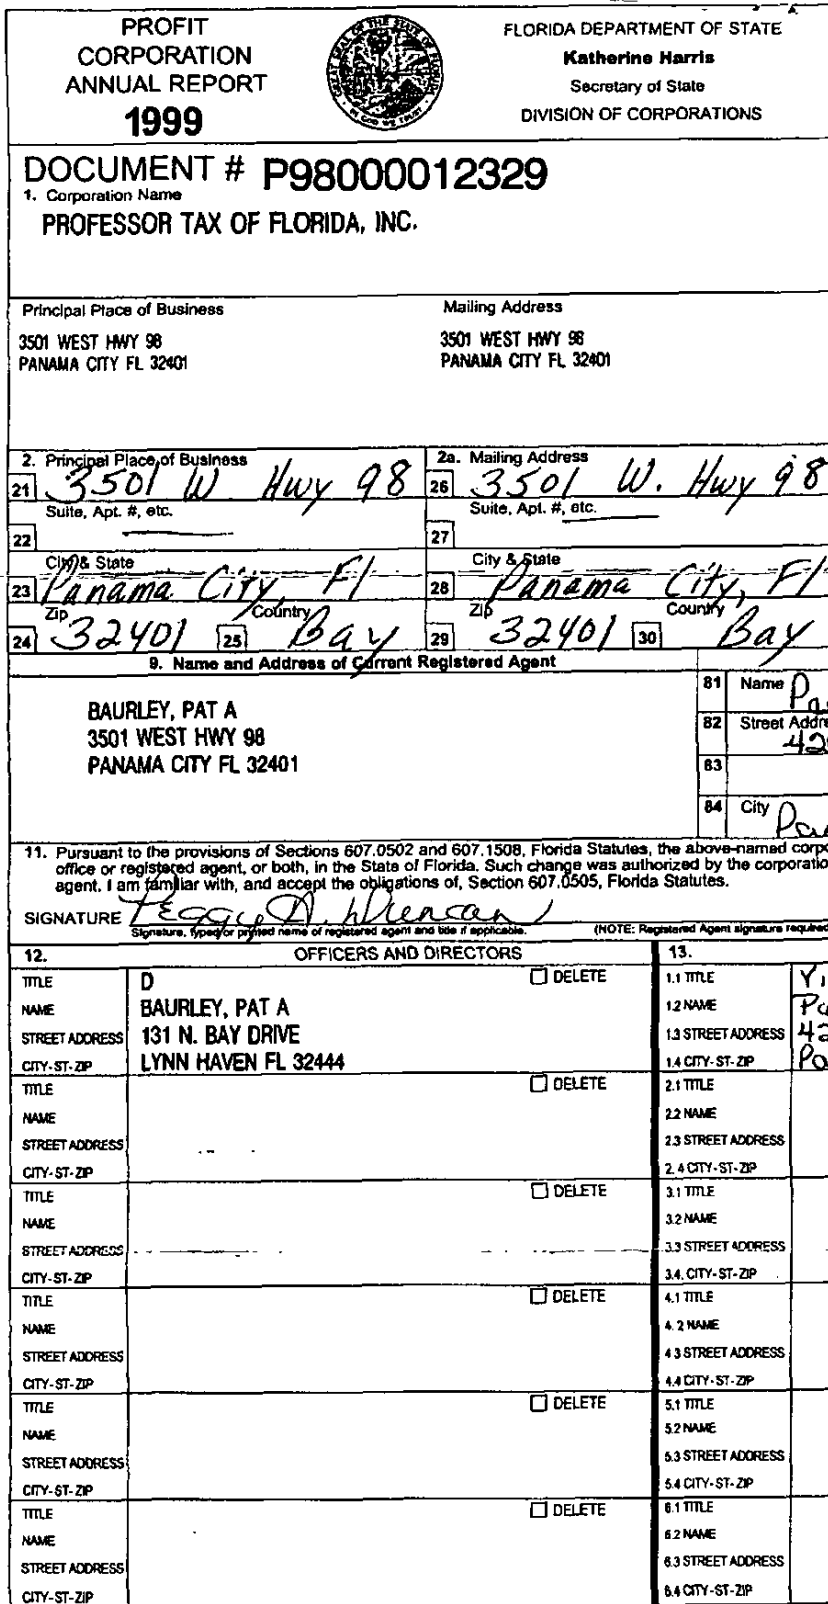 PROFIT
CORPORATION
ANNUAL REPORT
1999
GREAT SEAL OF THE STATE OF FLORIDA
IN GOD WE TRUST
FLORIDA DEPARTMENT OF STATE
Katherine Harris
Secretary of State
DIVISION OF CORPORATIONS
DOCUMENT # P98000012329
1. Corporation Name
PROFESSOR TAX OF FLORIDA, INC.
Principal Place of Business
Mailing Address
3501 WEST HWY 98
PANAMA CITY FL 32401
3501 WEST HWY 98
PANAMA CITY FL 32401
2. Principal Place of Business
2a. Mailing Address
21 3501 W Hwy 98
26 3501 W. Hwy 98
Suite, Apt. #, etc.
Suite, Apt. #, etc.
22
27
City & State
City & State
23 Panama City, Fl
28 Panama City, Fl
Zip Country
Zip Country
24 32401 25 Bay
29 32401 30 Bay
9. Name and Address of Current Registered Agent
BAURLEY, PAT A
3501 WEST HWY 98
PANAMA CITY FL 32401
81 Name
82 Street Addre
83
84 City
11. Pursuant to the provisions of Sections 607.0502 and 607.1508, Florida Statutes, the above-named corpo
office or registered agent, or both, in the State of Florida. Such change was authorized by the corporatio
agent. I am familiar with, and accept the obligations of, Section 607.0505, Florida Statutes.
SIGNATURE Peggy A. Duncan
Signature, typed or printed name of registered agent and title if applicable. (NOTE: Registered Agent signature required
12. OFFICERS AND DIRECTORS
13.
TITLE D DELETE
NAME BAURLEY, PAT A
STREET ADDRESS 131 N. BAY DRIVE
CITY-ST-ZIP LYNN HAVEN FL 32444
1.1 TITLE
1.2 NAME
1.3 STREET ADDRESS
1.4 CITY-ST-ZIP
TITLE DELETE
NAME
STREET ADDRESS
CITY-ST-ZIP
2.1 TITLE
2.2 NAME
2.3 STREET ADDRESS
2.4 CITY-ST-ZIP
TITLE DELETE
NAME
STREET ADDRESS
CITY-ST-ZIP
3.1 TITLE
3.2 NAME
3.3 STREET ADDRESS
3.4. CITY-ST-ZIP
TITLE DELETE
NAME
STREET ADDRESS
CITY-ST-ZIP
4.1 TITLE
4.2 NAME
4.3 STREET ADDRESS
4.4 CITY-ST-ZIP
TITLE DELETE
NAME
STREET ADDRESS
CITY-ST-ZIP
5.1 TITLE
5.2 NAME
5.3 STREET ADDRESS
5.4 CITY-ST-ZIP
TITLE DELETE
NAME
STREET ADDRESS
CITY-ST-ZIP
6.1 TITLE
6.2 NAME
6.3 STREET ADDRESS
6.4 CITY-ST-ZIP